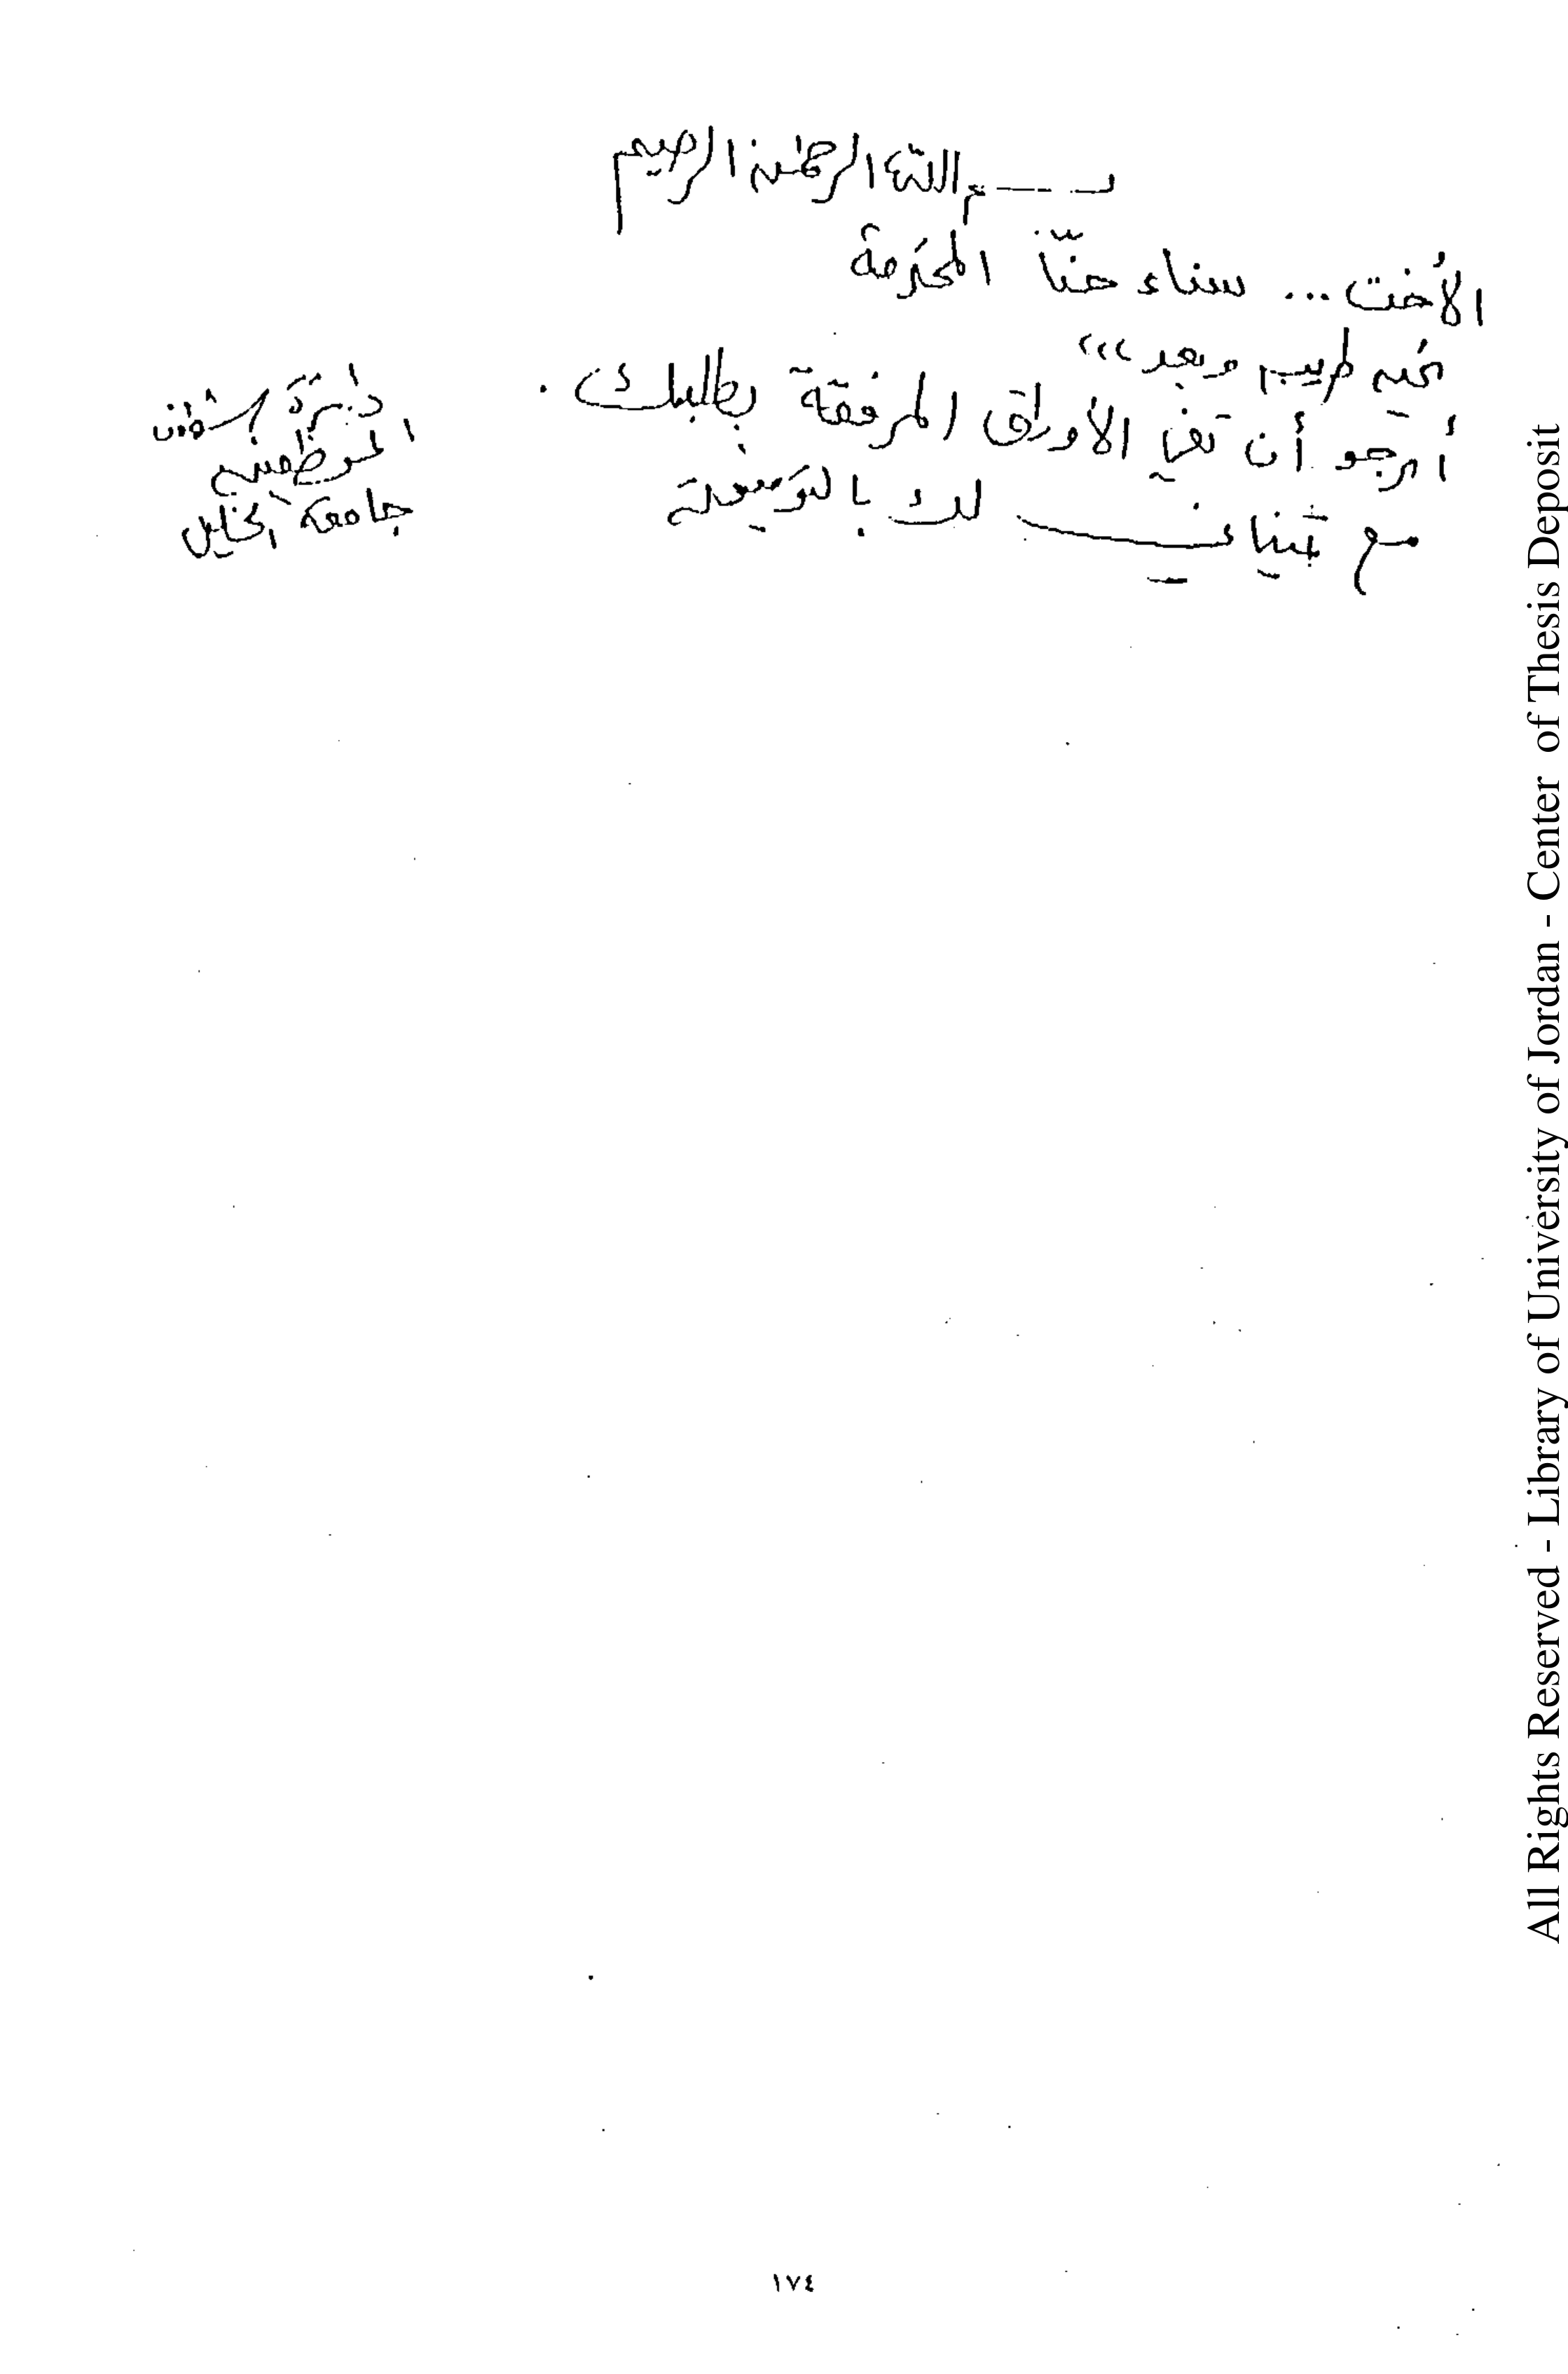 بسم الله الرحمن الرحيم
الأخت ... سناء حنّا المحترمة
تحية طيبة وبعد ،،،
أرجو أن تفي الأوراق المرفقة بطلبك .
مع تمنياتي لك بالتوفيق
دائرة شؤون
الموظفين
جامعة الخليل
١٧٤
All Rights Reserved - Library of University of Jordan - Center of Thesis Deposit